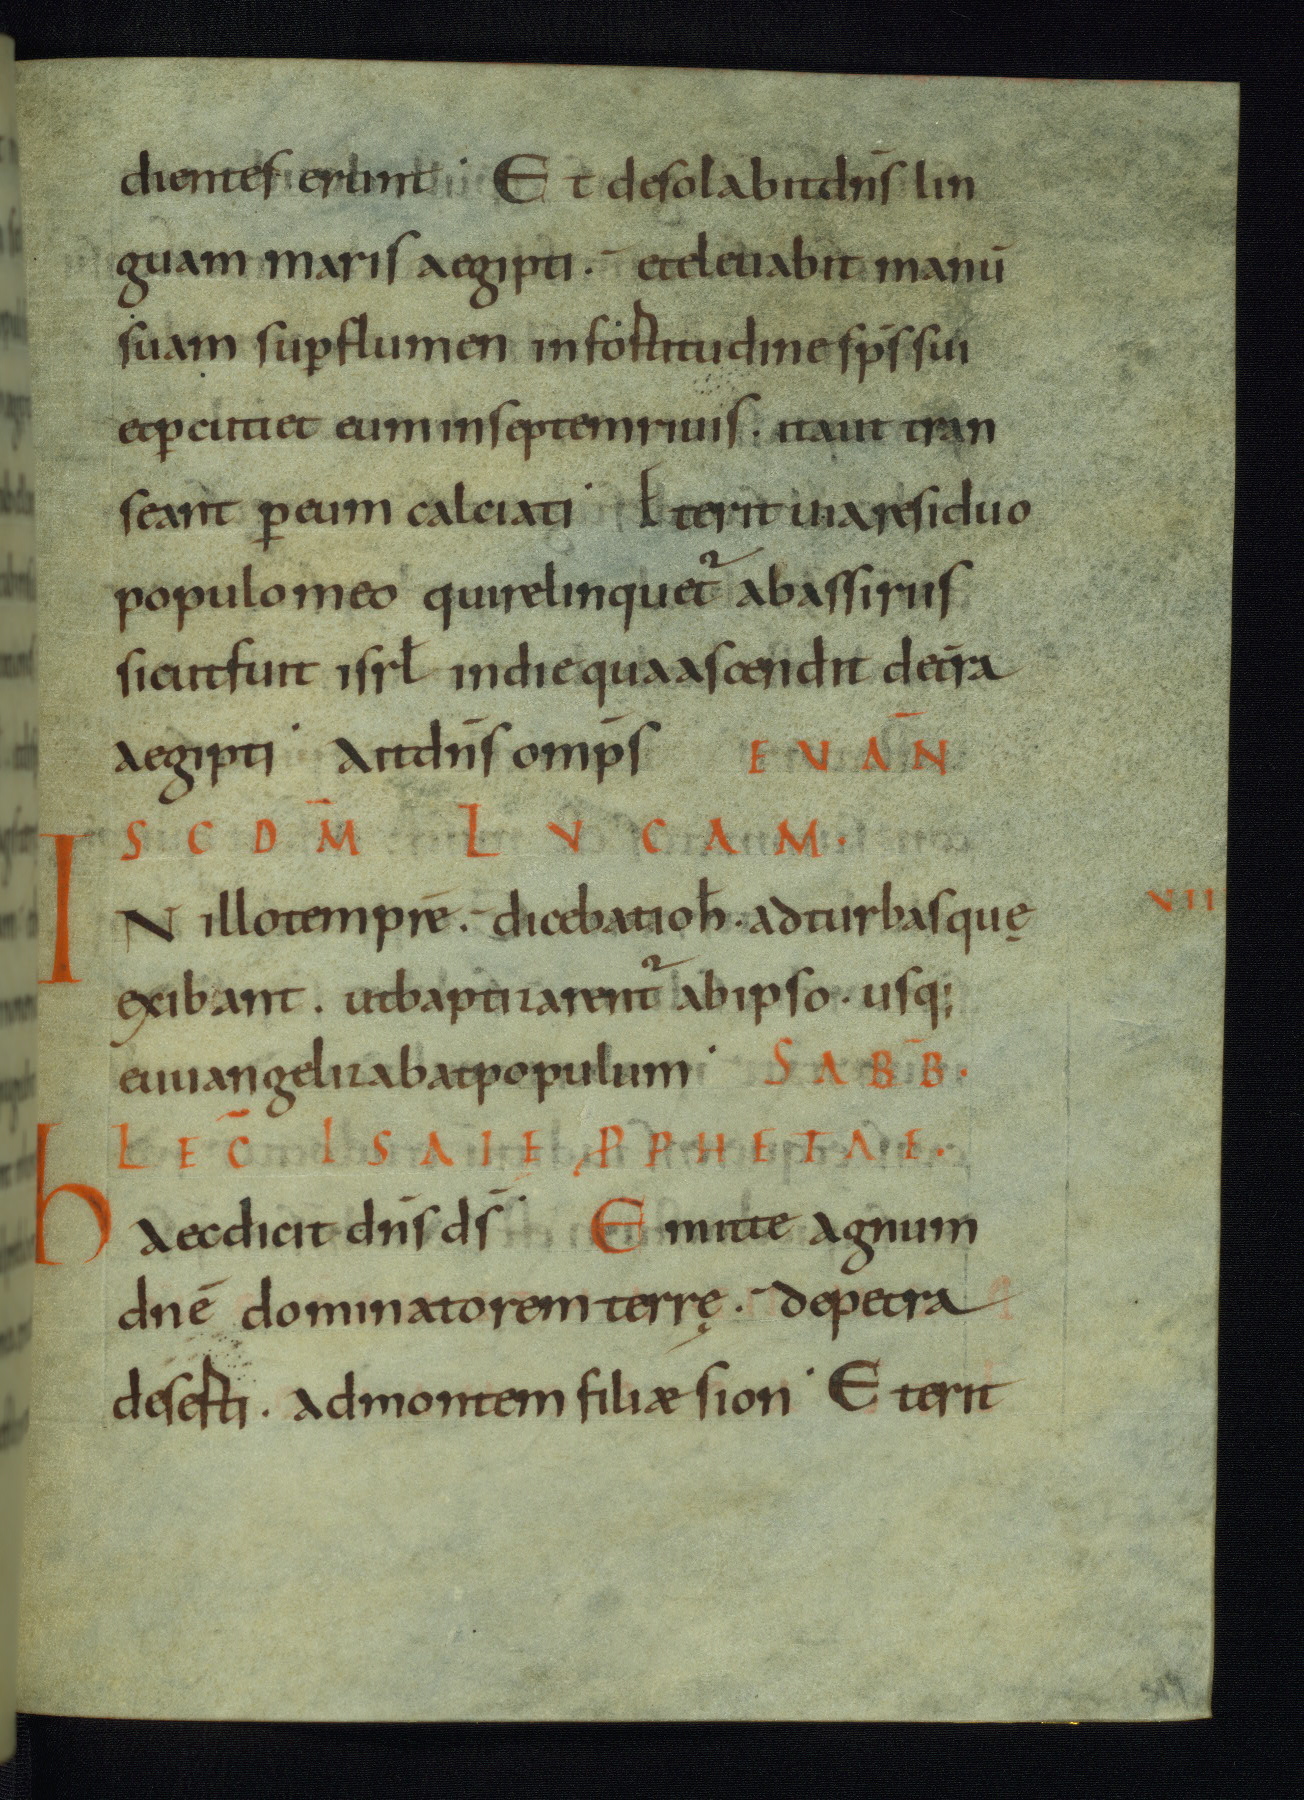 dientes erunt · Et desolabit dn̄s lin
guam maris aegipti · et eleuabit manū
suam sup̱ flumen in fortitudine sp̄s sui
et p̱cutiet eum in septem riuis · ita ut tran
seant p̱ eum calciati · Et erit uia residuo
populo meo qui relinquet᷑ ab assiriis
sicut fuit isrł in die qua ascendit de tr̄a
aegipti · Ait dn̄s omp̄s EVAN̄
SCDM̄ LVCAM ·
IN illo tempr̄e · dicebat ioh̄ · ad turbas quę
exibant · ut baptizarent᷑ ab ipso · usq;
euuangelizabat populum · SABB̄ ·
LEC̄ ISAIE PPHETAE ·
haec dicit dn̄s ds̄ · Emitte agnum
dn̄e dominatorem terrę · de petra
deserti · ad montem filiæ sion · Et erit
VII